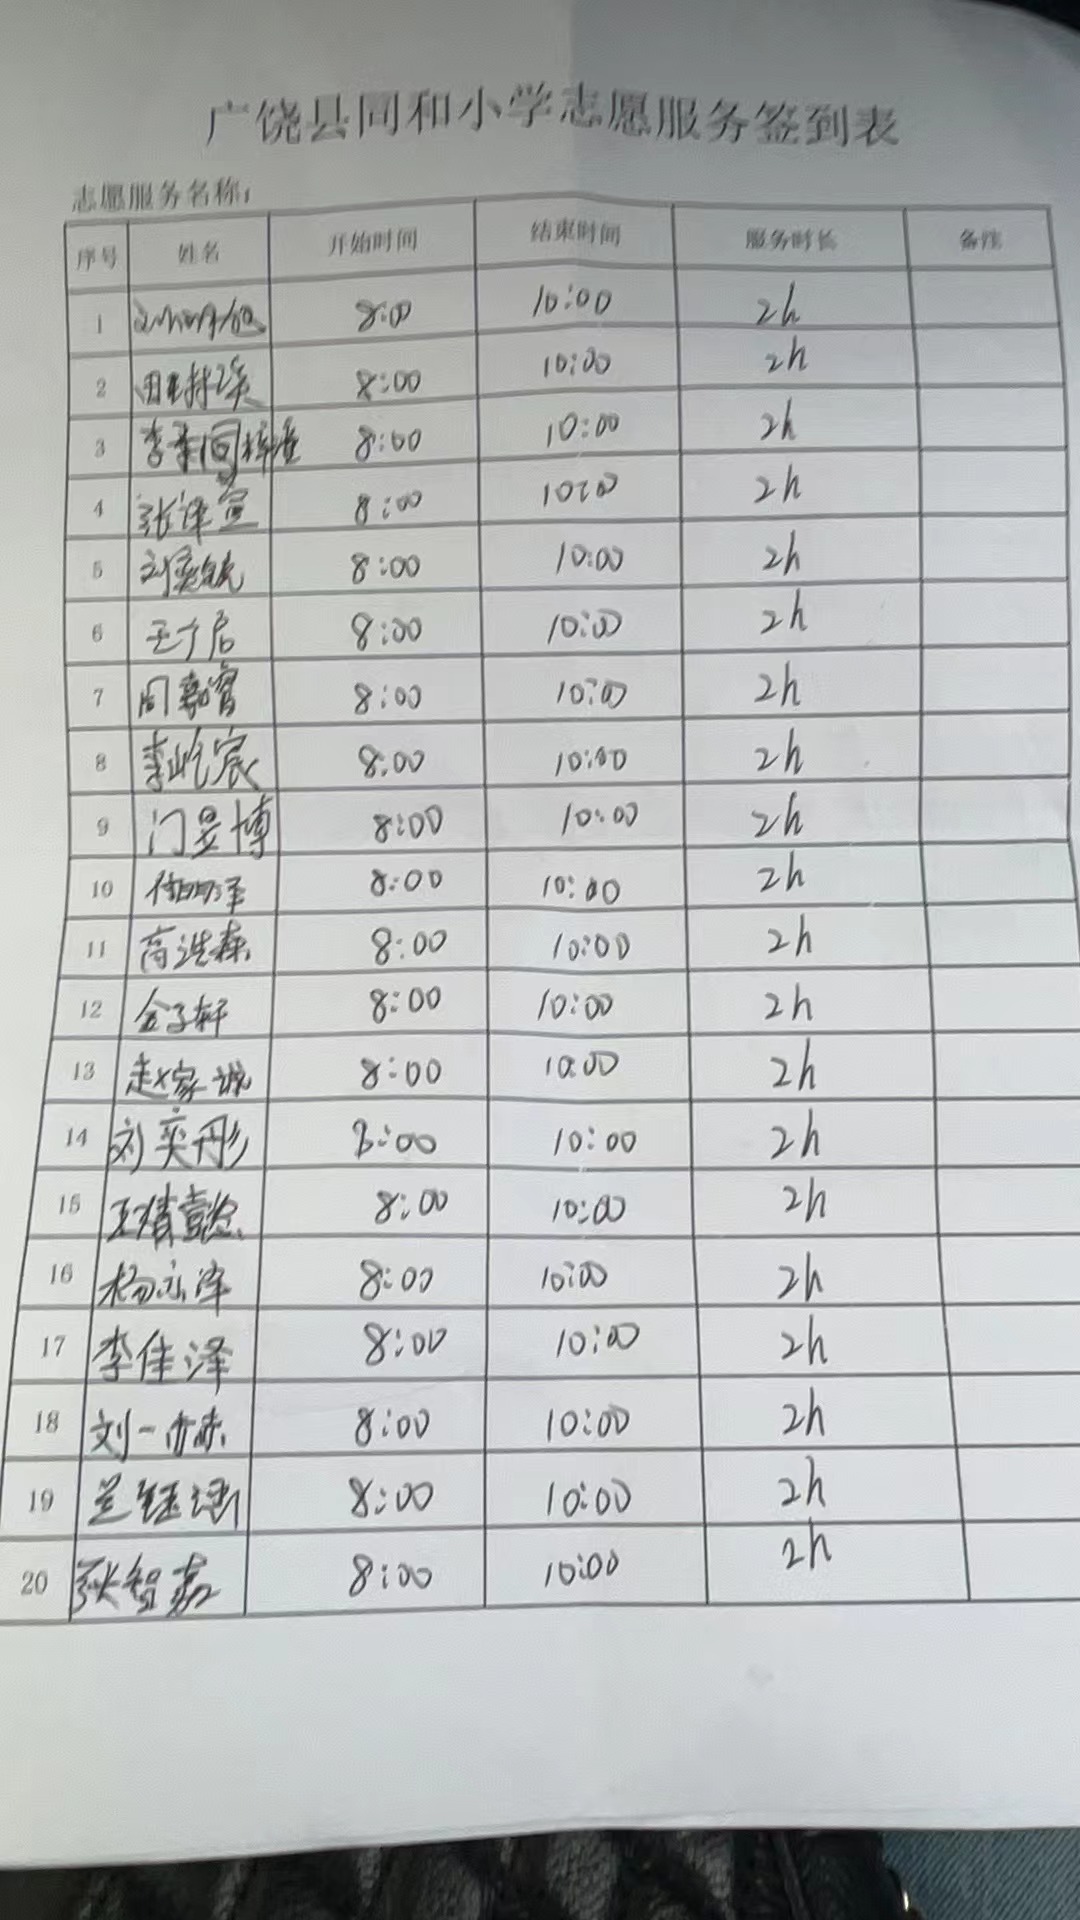 广饶县同和小学志愿服务签到表
志愿服务名称：
序号 姓名 开始时间 结束时间 服务时长 备注
1 8:00 10:00 2h
2 8:00 10:00 2h
3 8:00 10:00 2h
4 张泽宣 8:00 10:00 2h
5 8:00 10:00 2h
6 8:00 10:00 2h
7 8:00 10:00 2h
8 李屹宸 8:00 10:00 2h
9 门昱博 8:00 10:00 2h
10 8:00 10:00 2h
11 8:00 10:00 2h
12 金子轩 8:00 10:00 2h
13 赵家诚 8:00 10:00 2h
14 刘奕彤 8:00 10:00 2h
15 8:00 10:00 2h
16 杨永泽 8:00 10:00 2h
17 李佳泽 8:00 10:00 2h
18 8:00 10:00 2h
19 兰钰涵 8:00 10:00 2h
20 张智嘉 8:00 10:00 2h